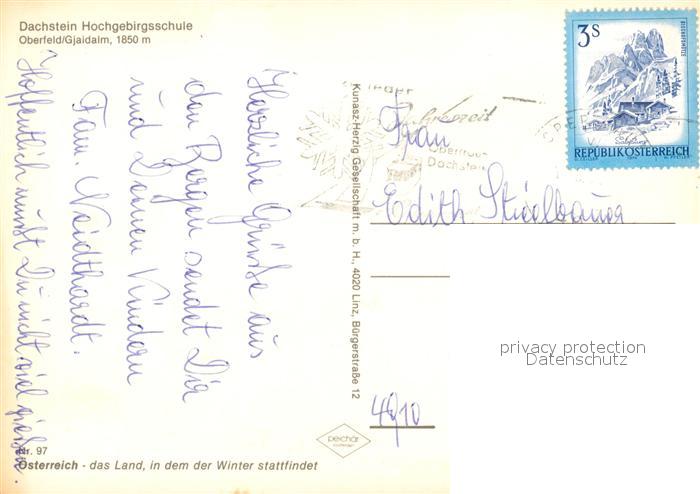 Dachstein Hochgebirgsschule
Oberfeld/Gjaidalm, 1850 m
Herzliche Grüße aus
den Bergen sendet Dir
und Deinen Kindern
Fam. Neidthardt.
Hoffentlich mußt Du nicht viel gießen.
Nr. 97
Österreich - das Land, in dem der Winter stattfindet
Kunasz-Herzig Gesellschaft m. b. H., 4020 Linz, Bürgerstraße 12
pechar
3s
BISCHOFSMÜTZE
Salzburg
REPUBLIK ÖSTERREICH
Dachstein
Frau
Edith
4810
privacy protection
Datenschutz